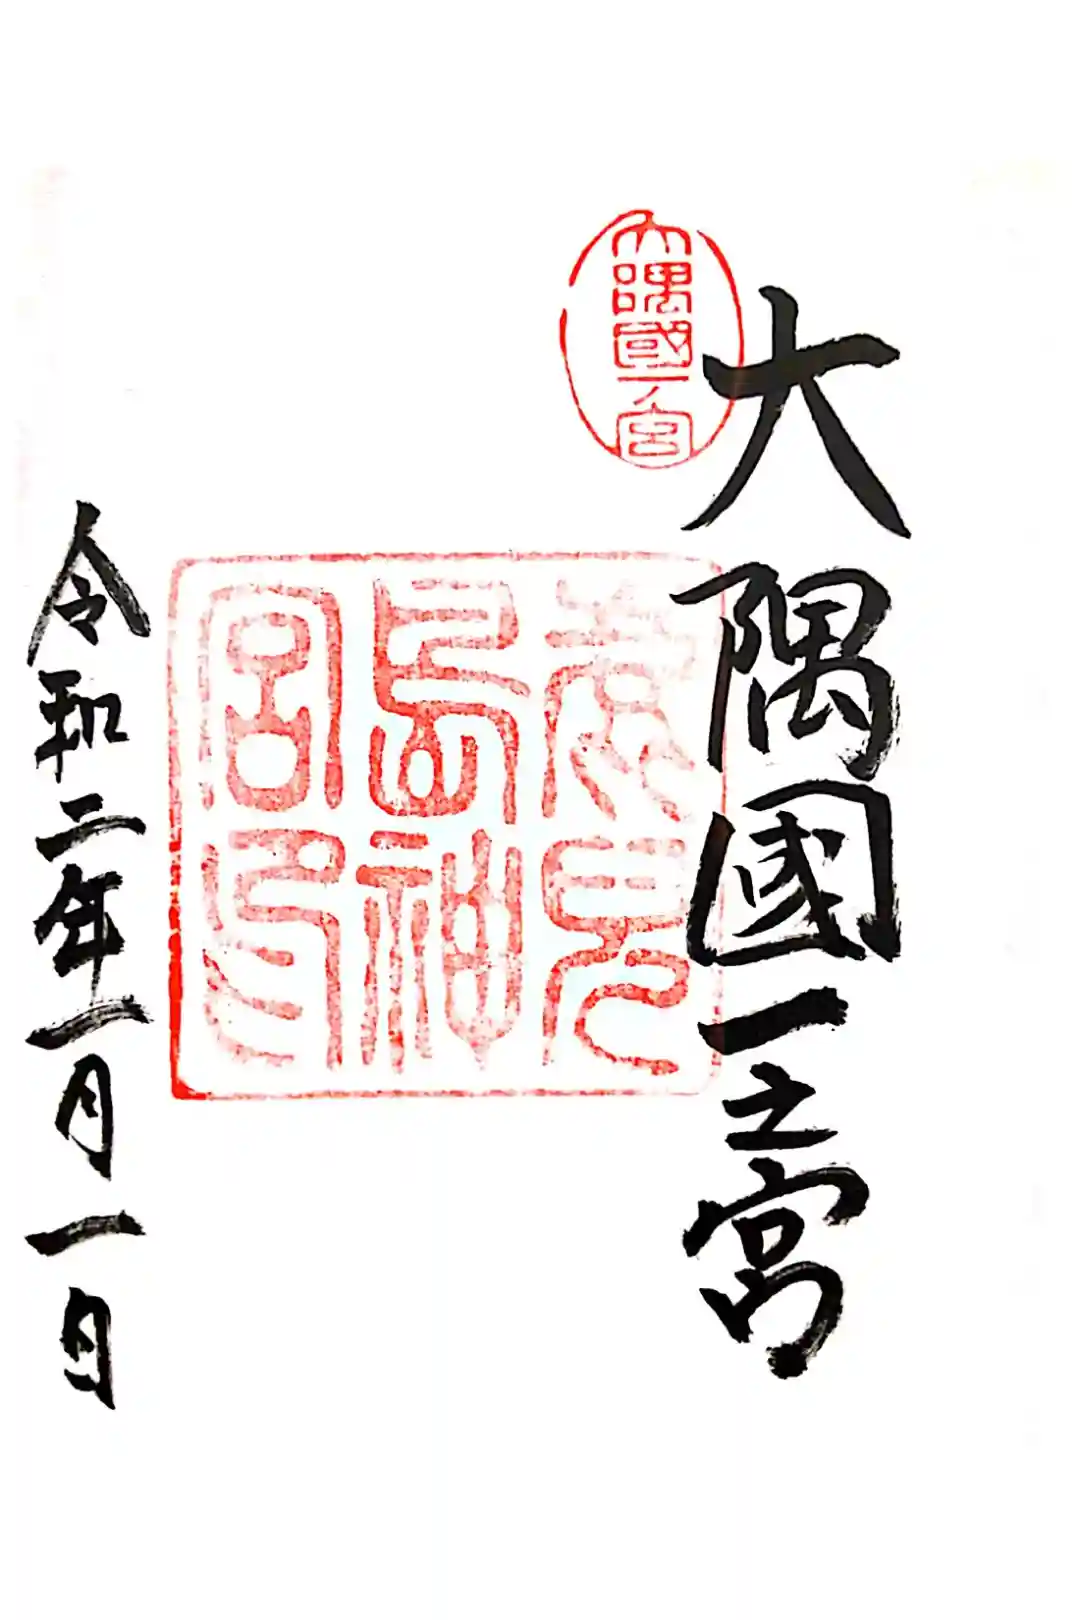 大隅國一之宮
大隅國一ノ宮
鹿兒
島神
宮印
令和二年一月一日